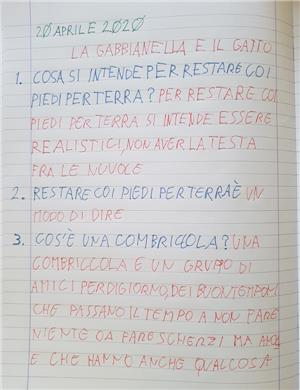 20 APRILE 2020
LA GABBIANELLA E IL GATTO
1. COSA SI INTENDE PER RESTARE COI
PIEDI PER TERRA? PER RESTARE COI
PIEDI PER TERRA SI INTENDE ESSERE
REALISTICI, NON AVER LA TESTA
FRA LE NUVOLE
2. RESTARE COI PIEDI PER TERRA È UN
MODO DI DIRE
3. COS'È UNA COMBRICCOLA? UNA
COMBRICCOLA È UN GRUPPO DI
AMICI PERDIGIORNO, DEI BUONTEMPONI
CHE PASSANO IL TEMPO A NON FARE
NIENTE O A FARE SCHERZI MA
E CHE HANNO ANCHE QUALCOSA